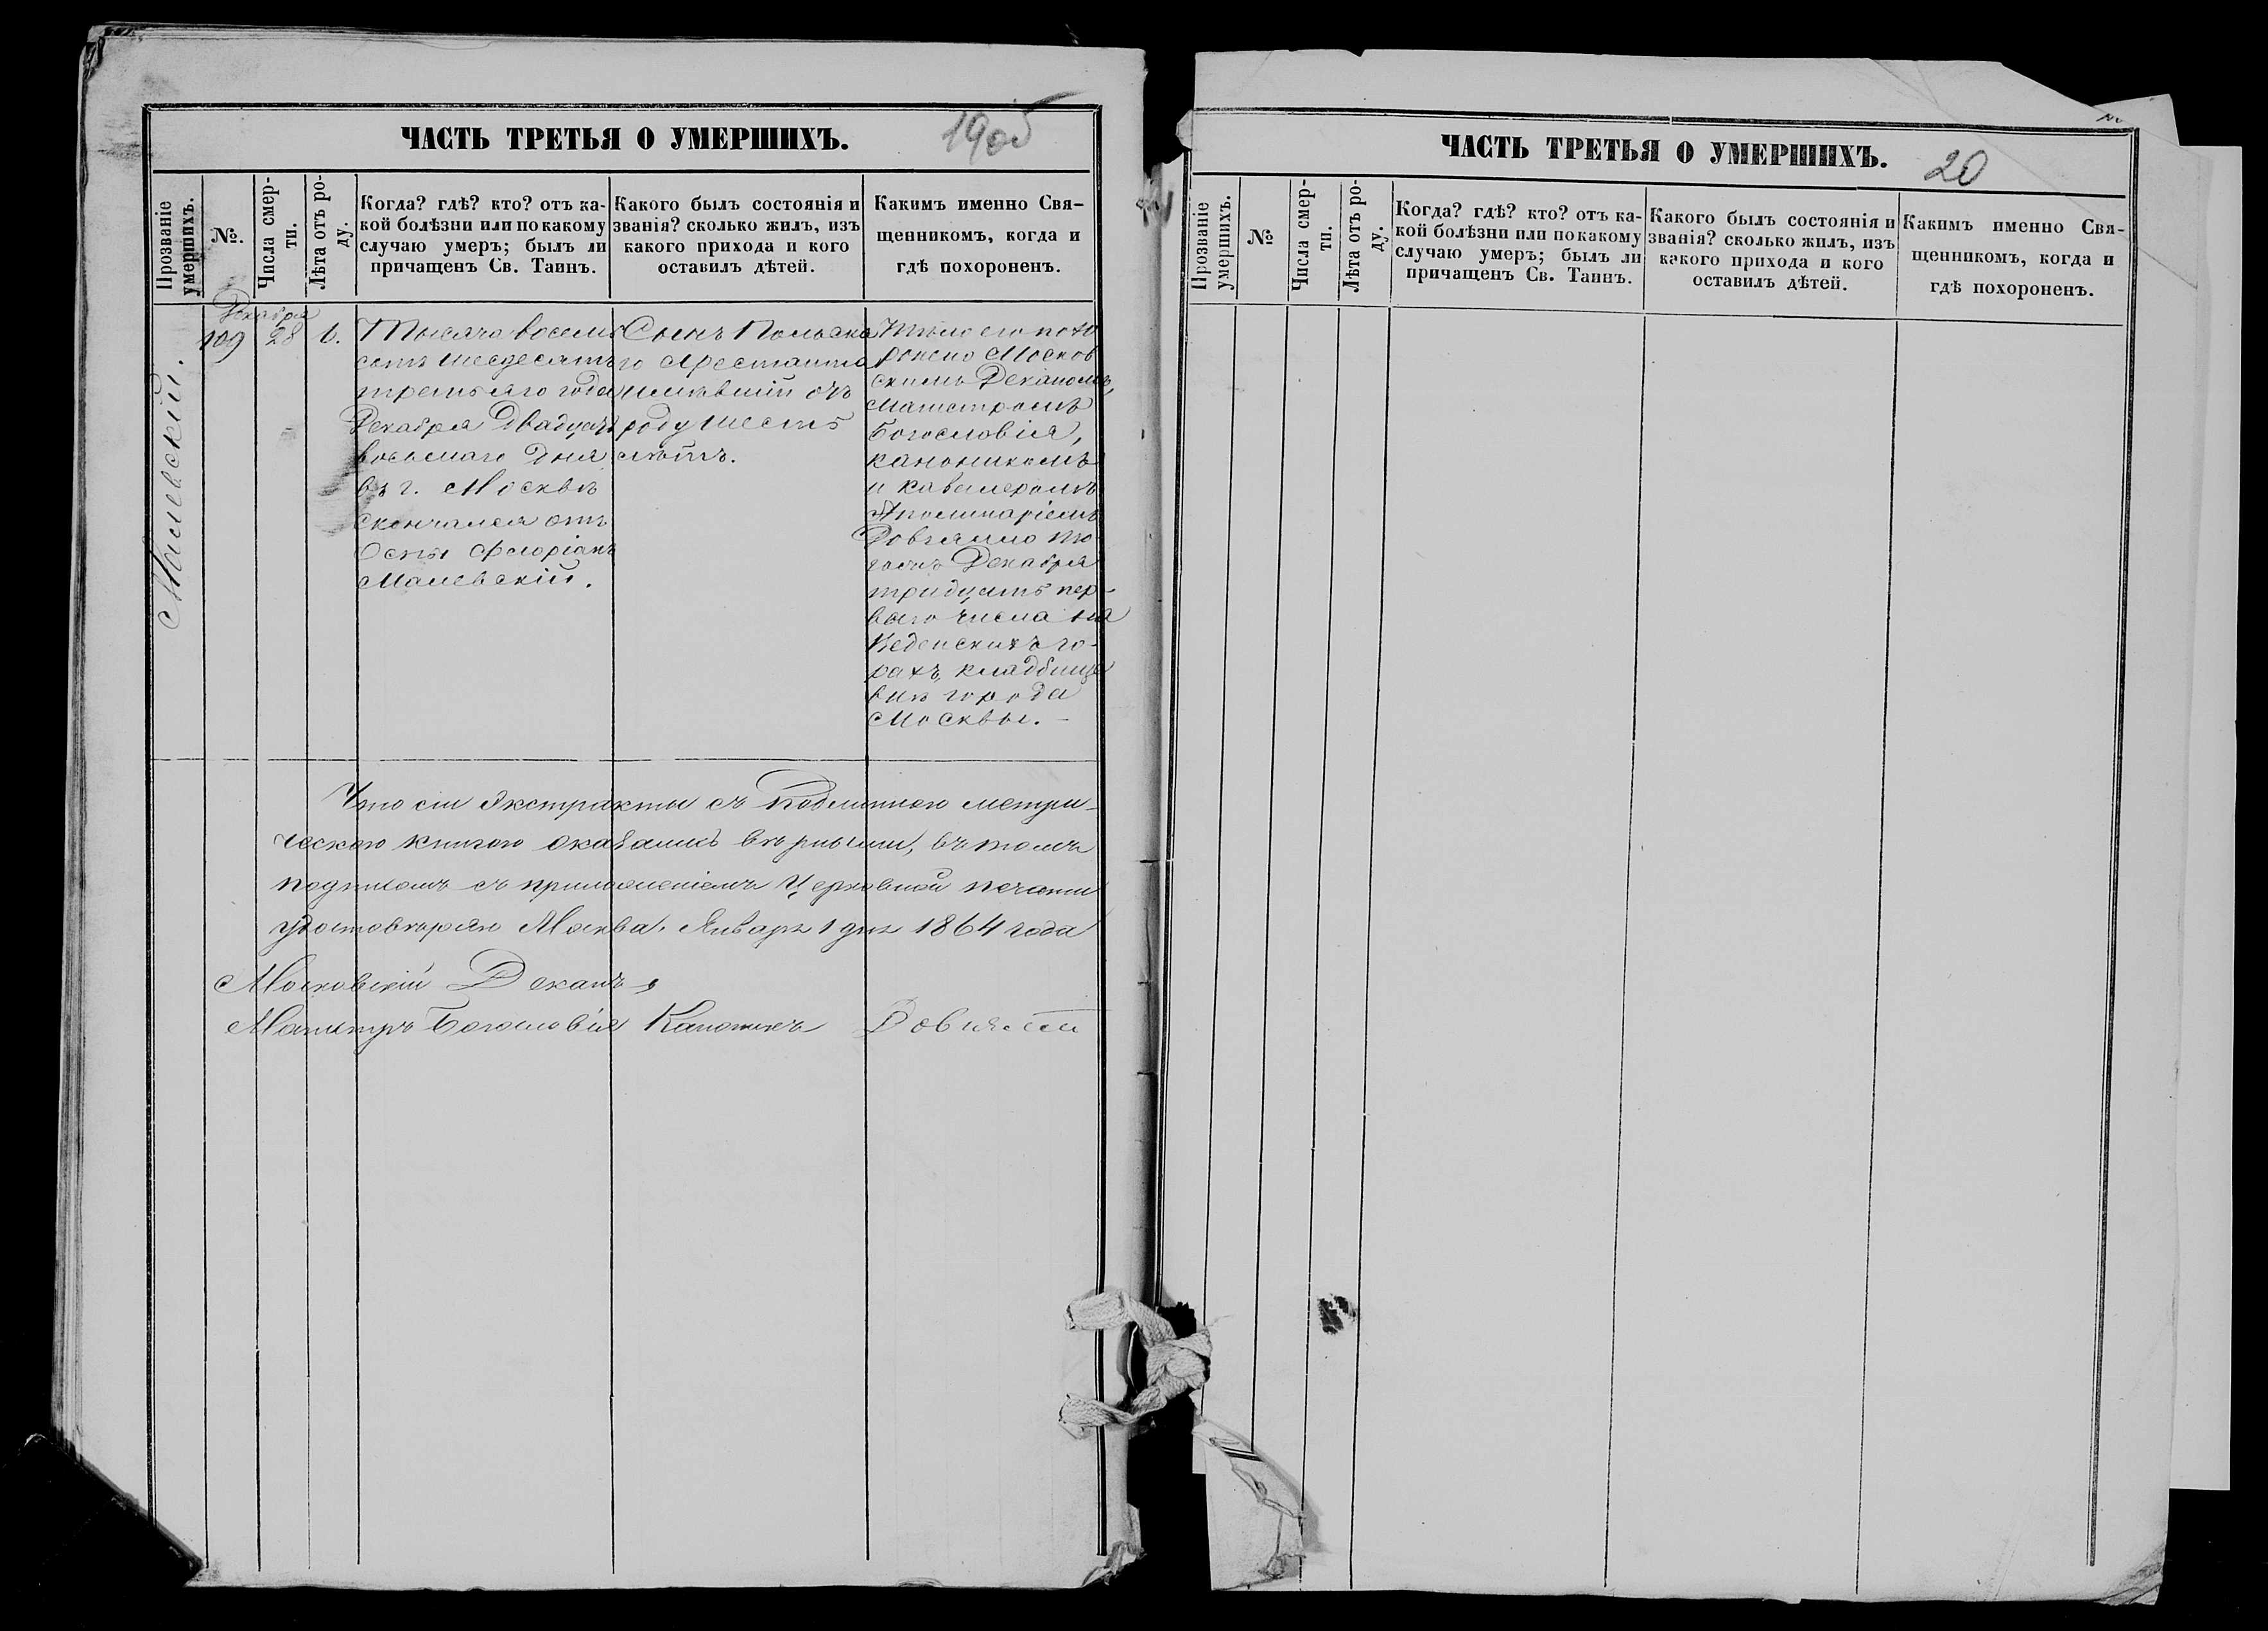 ЧАСТЬ ТРЕТЬЯ О УМЕРШИХЪ.
19об
Прозваніе
умершихъ.
№.
Числа смер-
ти.
Лѣта отъ ро-
ду.
Когда? гдѣ? кто? отъ ка-
кой болѣзни или по какому
случаю умеръ; былъ ли
причащенъ Св. Таинъ.
Какого былъ состоянія и
званія? сколько жилъ, изъ
какого прихода и кого
оставилъ дѣтей.
Какимъ именно Свя-
щенникомъ, когда и
гдѣ похороненъ.
Малевскій.
Декабря
109
28
6.
Тысяча восемь
сотъ шесдесятъ
третьяго года
Декабря двадцать
восьмаго дня
въ г. Москвѣ
скончался отъ
Оспы Флоріанъ
Малевскій.
Сынъ Польска
го Арестанта
имѣвшій отъ
роду шесть
лѣтъ.
Тѣло его похо
ронено Москов
скимъ Деканомъ,
Магистромъ
Богословія,
каноникомъ
и кавалеромъ
Аполинаріемъ
Довгялло то
гожъ Декабря
тридцать пер-
ваго числа на
Веденскихъ го-
рахъ, кладбище
внѣ города
Москвы. -
Что сіи Экстракты съ Подлинною метри-
ческою книгою оказались вѣрными, въ томъ
подписомъ съ приложеніемъ Церковной печати
удостовѣряю Москва. Январь 1 дня 1864 года
Московскій Деканъ,
Магистръ Богословія Каноникъ Довгялло
ЧАСТЬ ТРЕТЬЯ О УМЕРШИХЪ.
20
Прозваніе
умершихъ.
№
Числа смер-
ти.
Лѣта отъ ро-
ду.
Когда? гдѣ? кто? отъ ка-
кой болѣзни или по какому
случаю умеръ; былъ ли
причащенъ Св. Таинъ.
Какого былъ состоянія и
званія? сколько жилъ, изъ
какого прихода и кого
оставилъ дѣтей.
Какимъ именно Свя-
щенникомъ, когда и
гдѣ похороненъ.